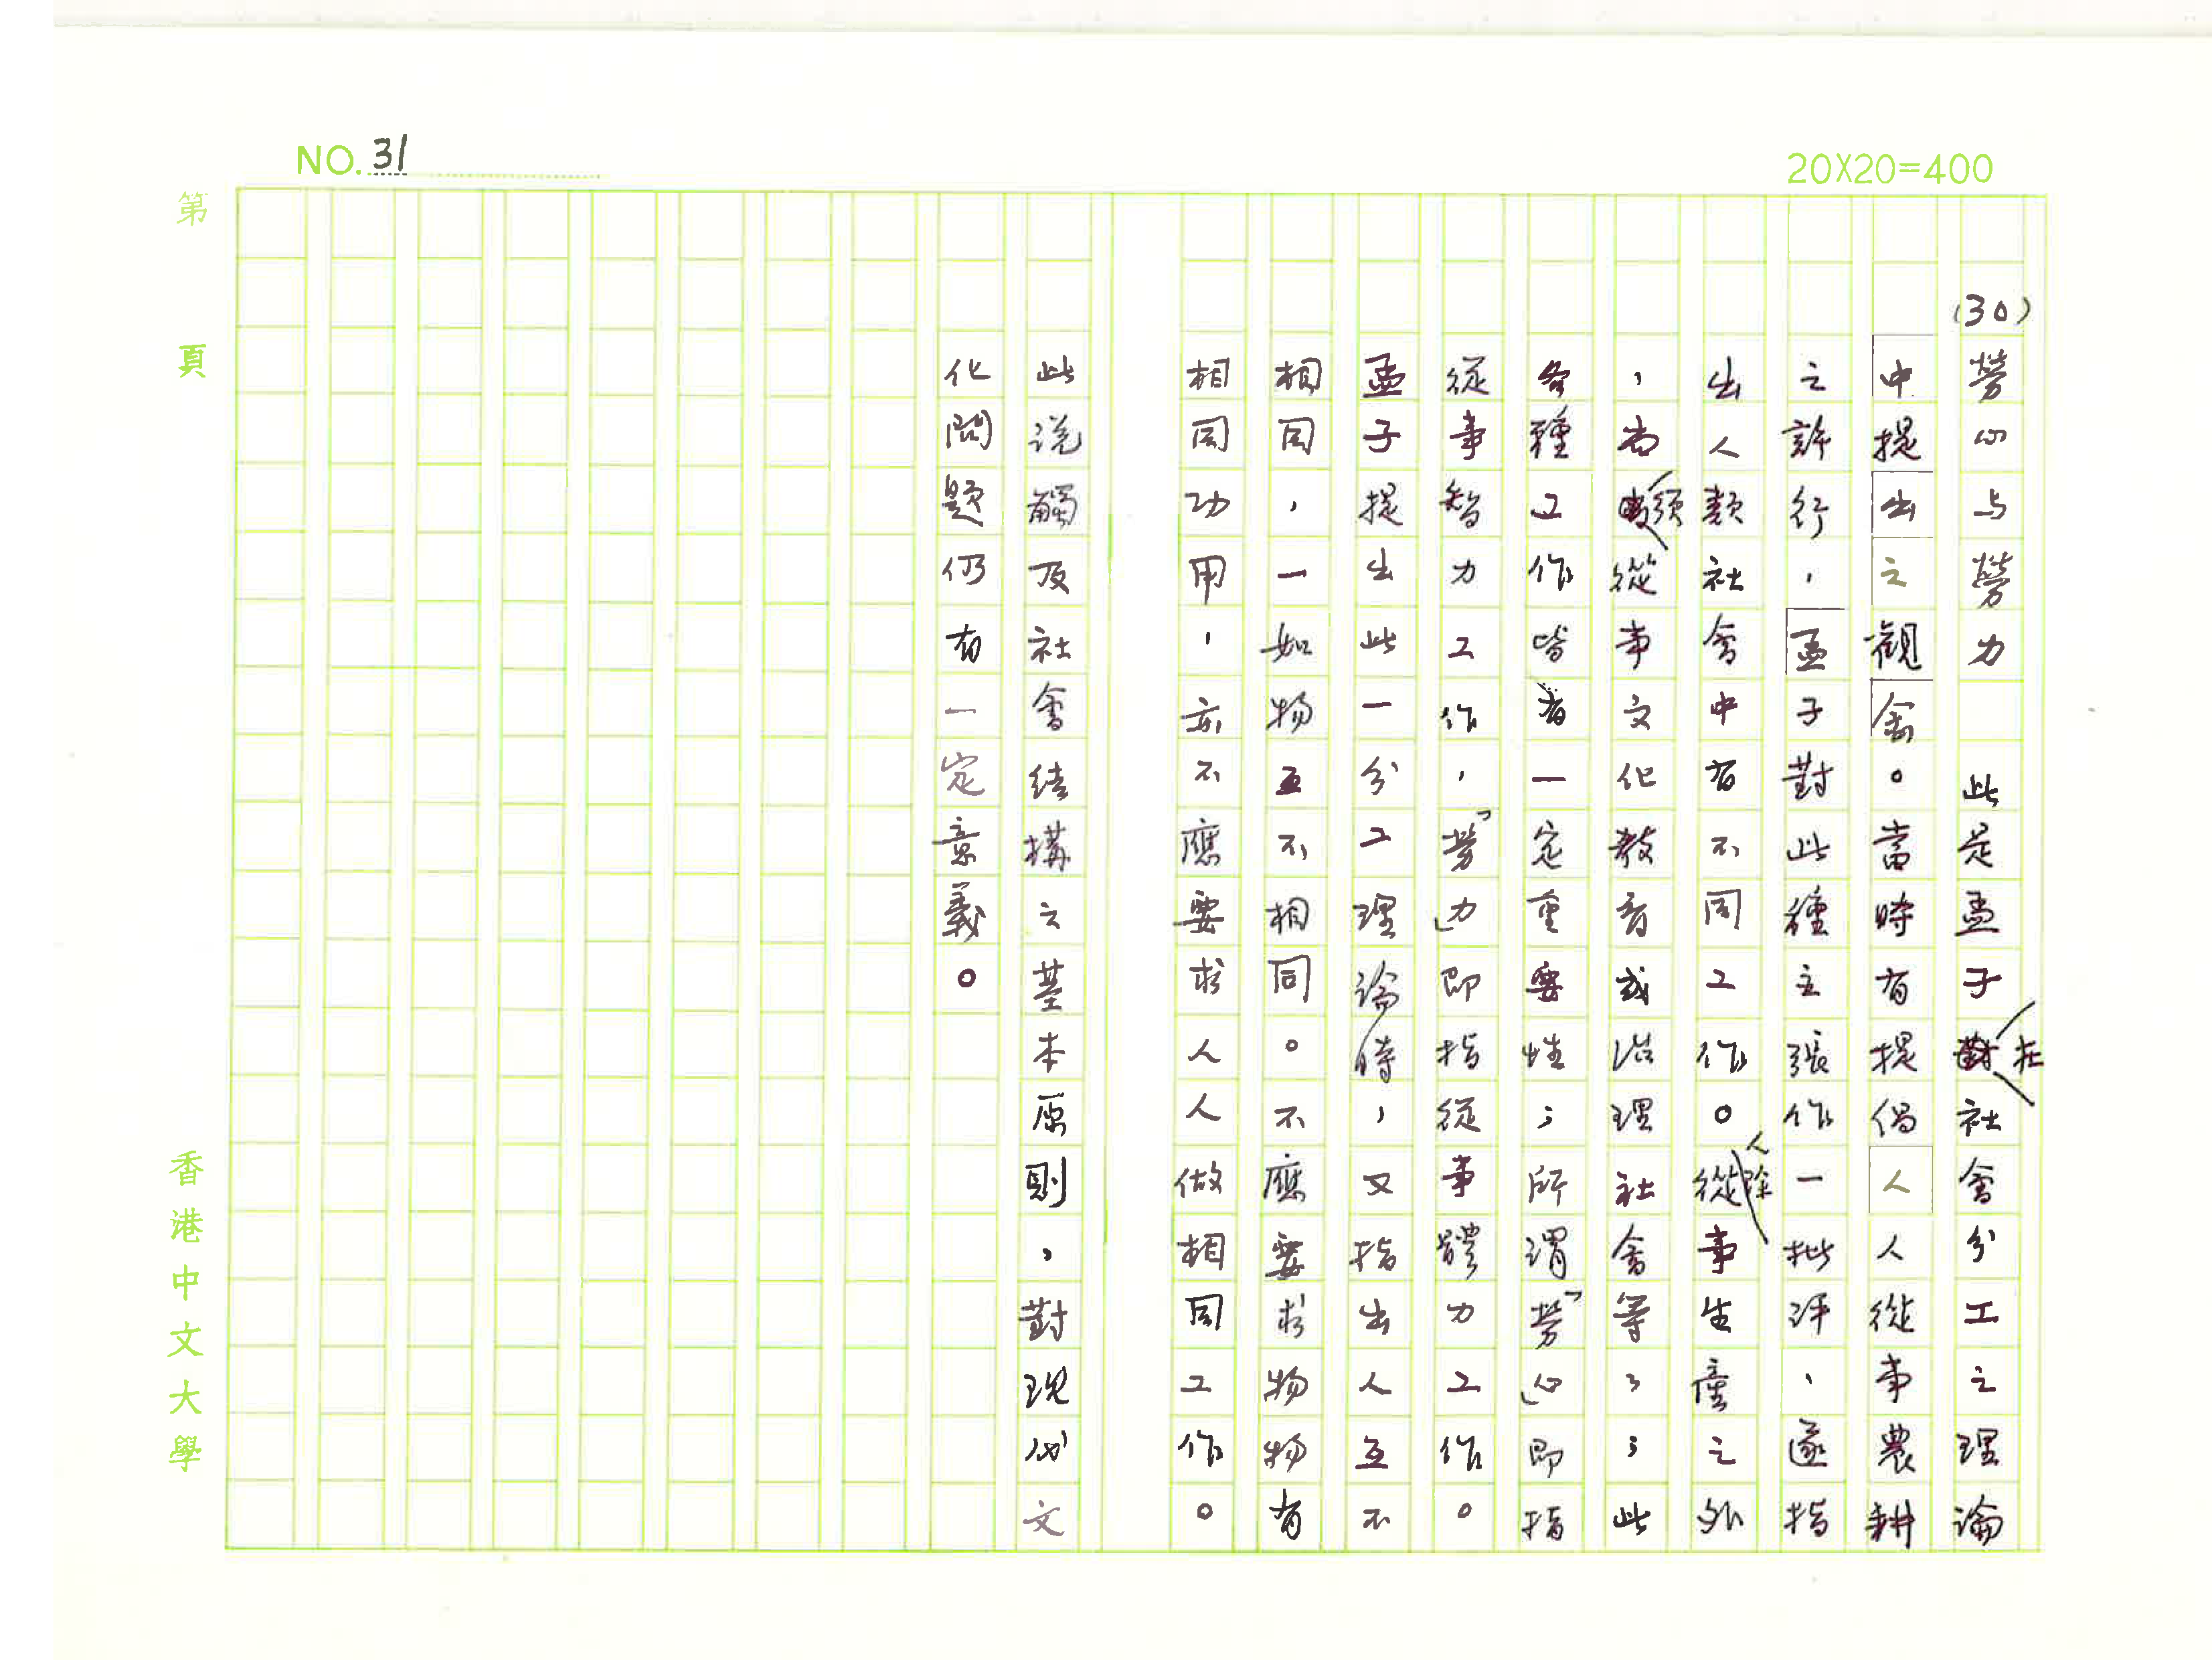 NO. 31
20X20=400
(30)
勞心与勞力　此是孟子在社會分工之理論
中提出之觀念。當時有提倡人人從事農耕
之許行，孟子對此種主張作一批評，遂指
出人類社會中有不同工作。人除從事生產之外
，尚須從事文化教育或治理社會等等；此
各種工作皆有一定重要性；所謂「勞心」即指
從事智力工作，「勞力」即指從事體力工作。
孟子提出此一分工理論時，又指出人互不
相同，一如物互不相同。不應要求物物有
相同功用，亦不應要求人人做相同工作。
此說觸及社會結構之基本原則，對現代文
化問題仍有一定意義。
第　頁
香港中文大學